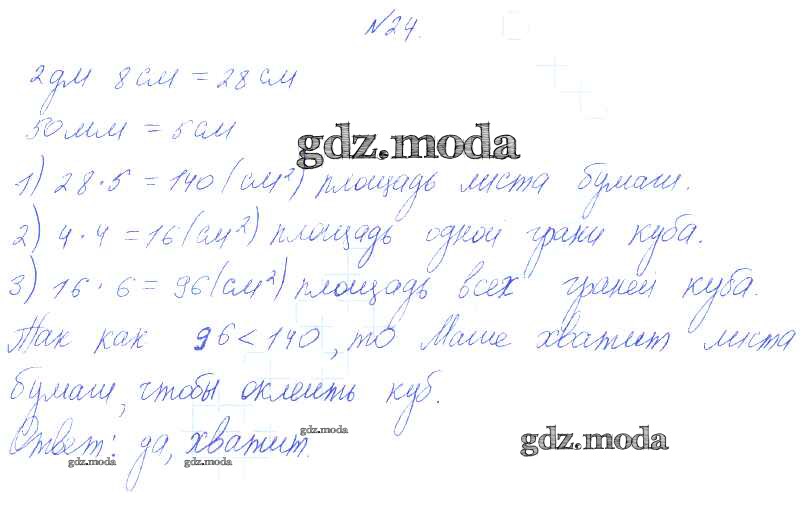 №24.
2дм 8см = 28см
50мм = 5см
gdz.moda
1) 28·5 = 140 (см²) площадь листа бумаги.
2) 4·4 = 16 (см²) площадь одной грани куба.
3) 16·6 = 96 (см²) площадь всех граней куба.
Так как 96 < 140, то Маше хватит листа
бумаги, чтобы оклеить куб.
Ответ: да, хватит.
gdz.moda
gdz.moda
gdz.moda
gdz.moda